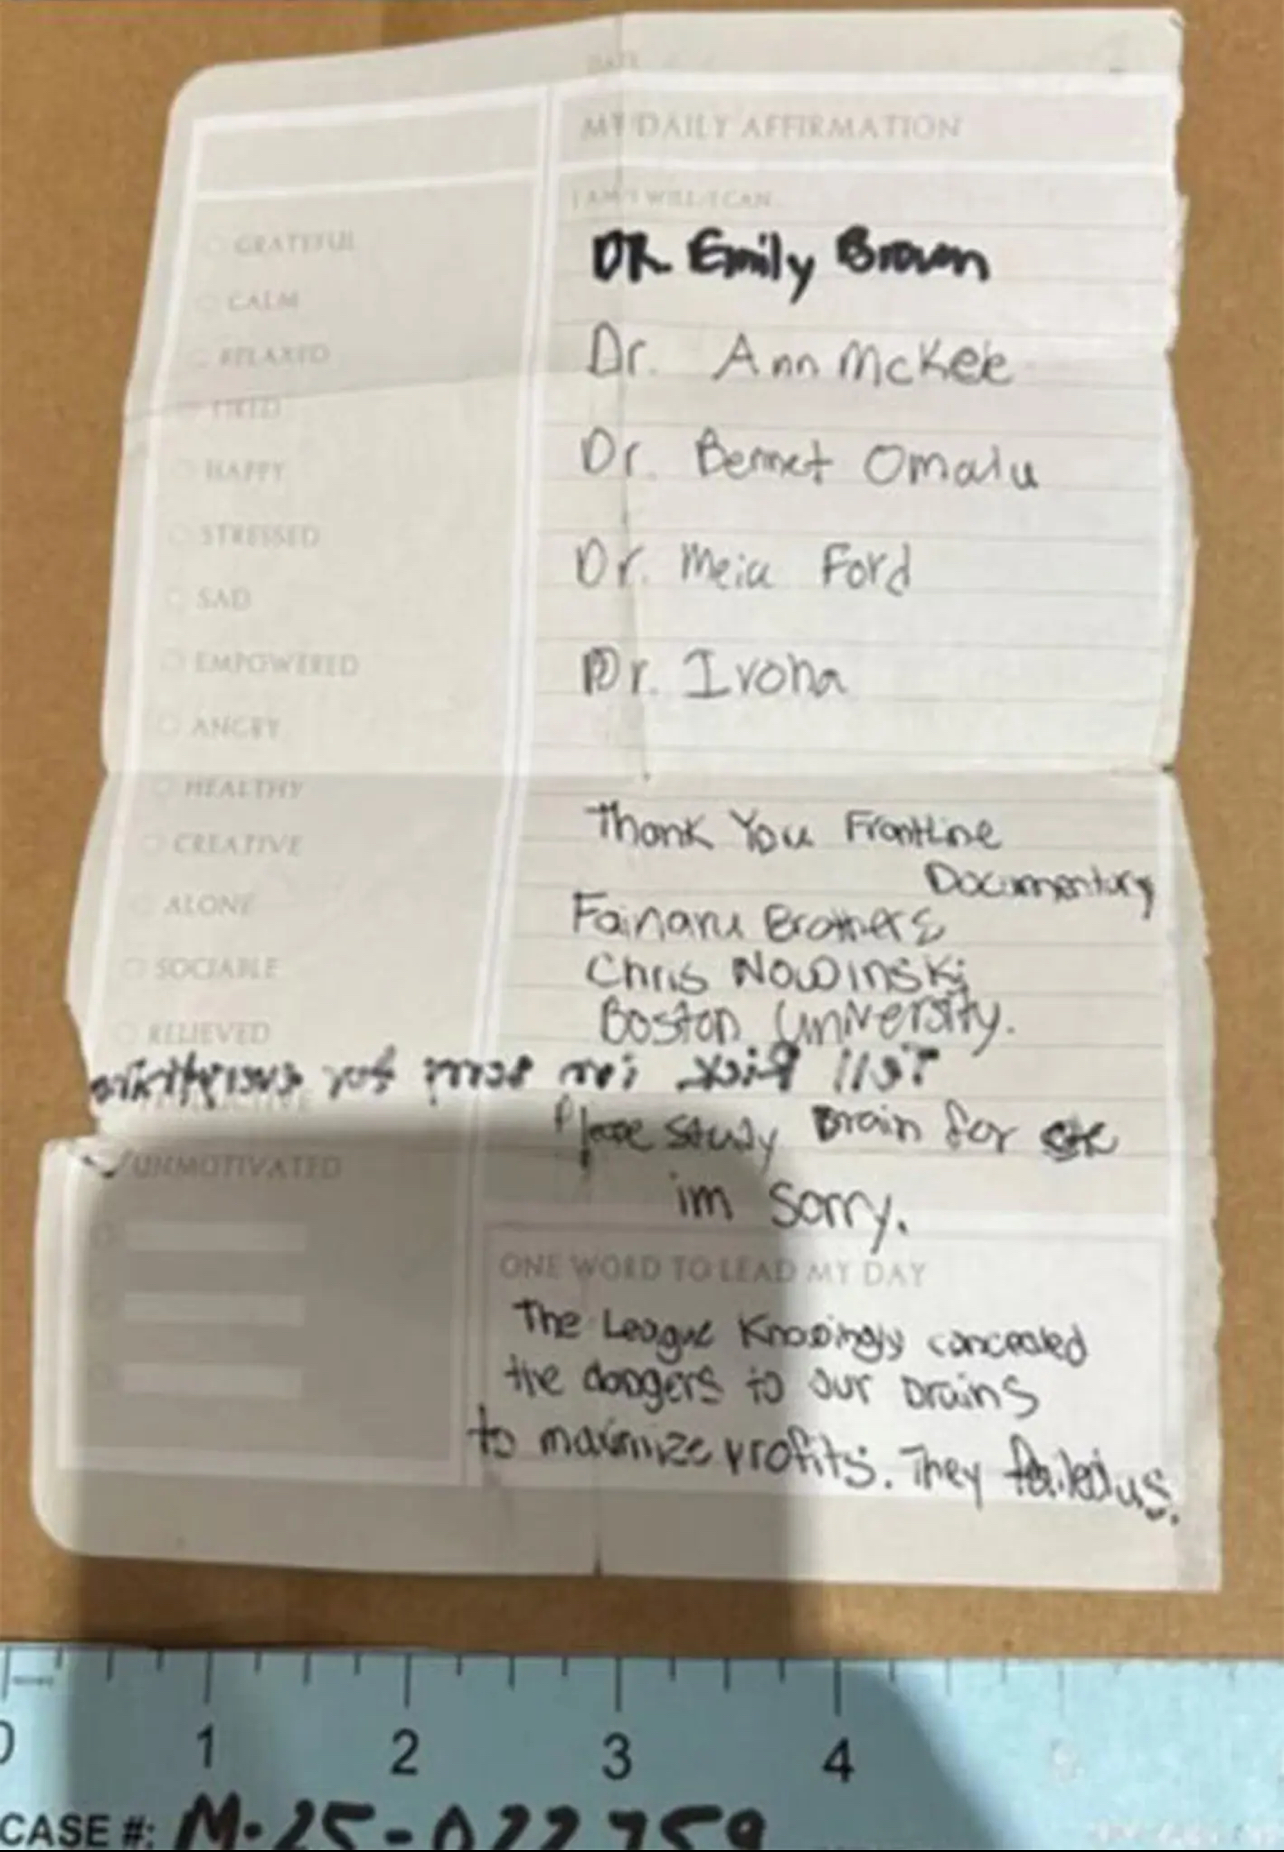 DATE
MY DAILY AFFIRMATION
I AM / I WILL / I CAN
GRATEFUL
CALM
RELAXED
TIRED
HAPPY
STRESSED
SAD
EMPOWERED
ANGRY
HEALTHY
CREATIVE
ALONE
SOCIABLE
RELIEVED
UNMOTIVATED
DR. Emily Brown
Dr. Ann McKee
Dr. Bennet Omalu
Dr. Meia Ford
Dr. Ivona
Thank You Frontline
Documentary
Fainaru Brothers
Chris Nowinski
Boston University.
Tell Rick im sorry for everything
Please study Brain for
im sorry.
ONE WORD TO LEAD MY DAY
The League Knowingly concealed
the dangers to our brains
to maximize profits. They failed us.
0 1 2 3 4
CASE #: M-25-022759